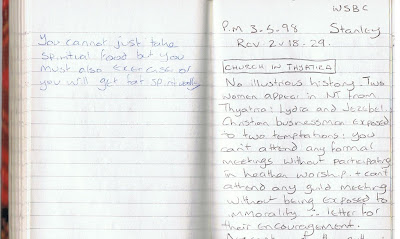 You cannot just take
spiritual food but you
must also exercise or
you will get fat spiritually
WSBC
P.M 3.5.98 Stanley
Rev 2v18-29.
CHURCH IN THYATIRA
No illustrious history. Two
women appear in NT from
Thyatira: Lydia and Jezebel.
Christian businessman exposed
to two temptations: you
can't attend any formal
meetings without participating
in heathen worship. + can't
attend any guild meeting
without being exposed to
immorality ∴ letter for
their encouragement.